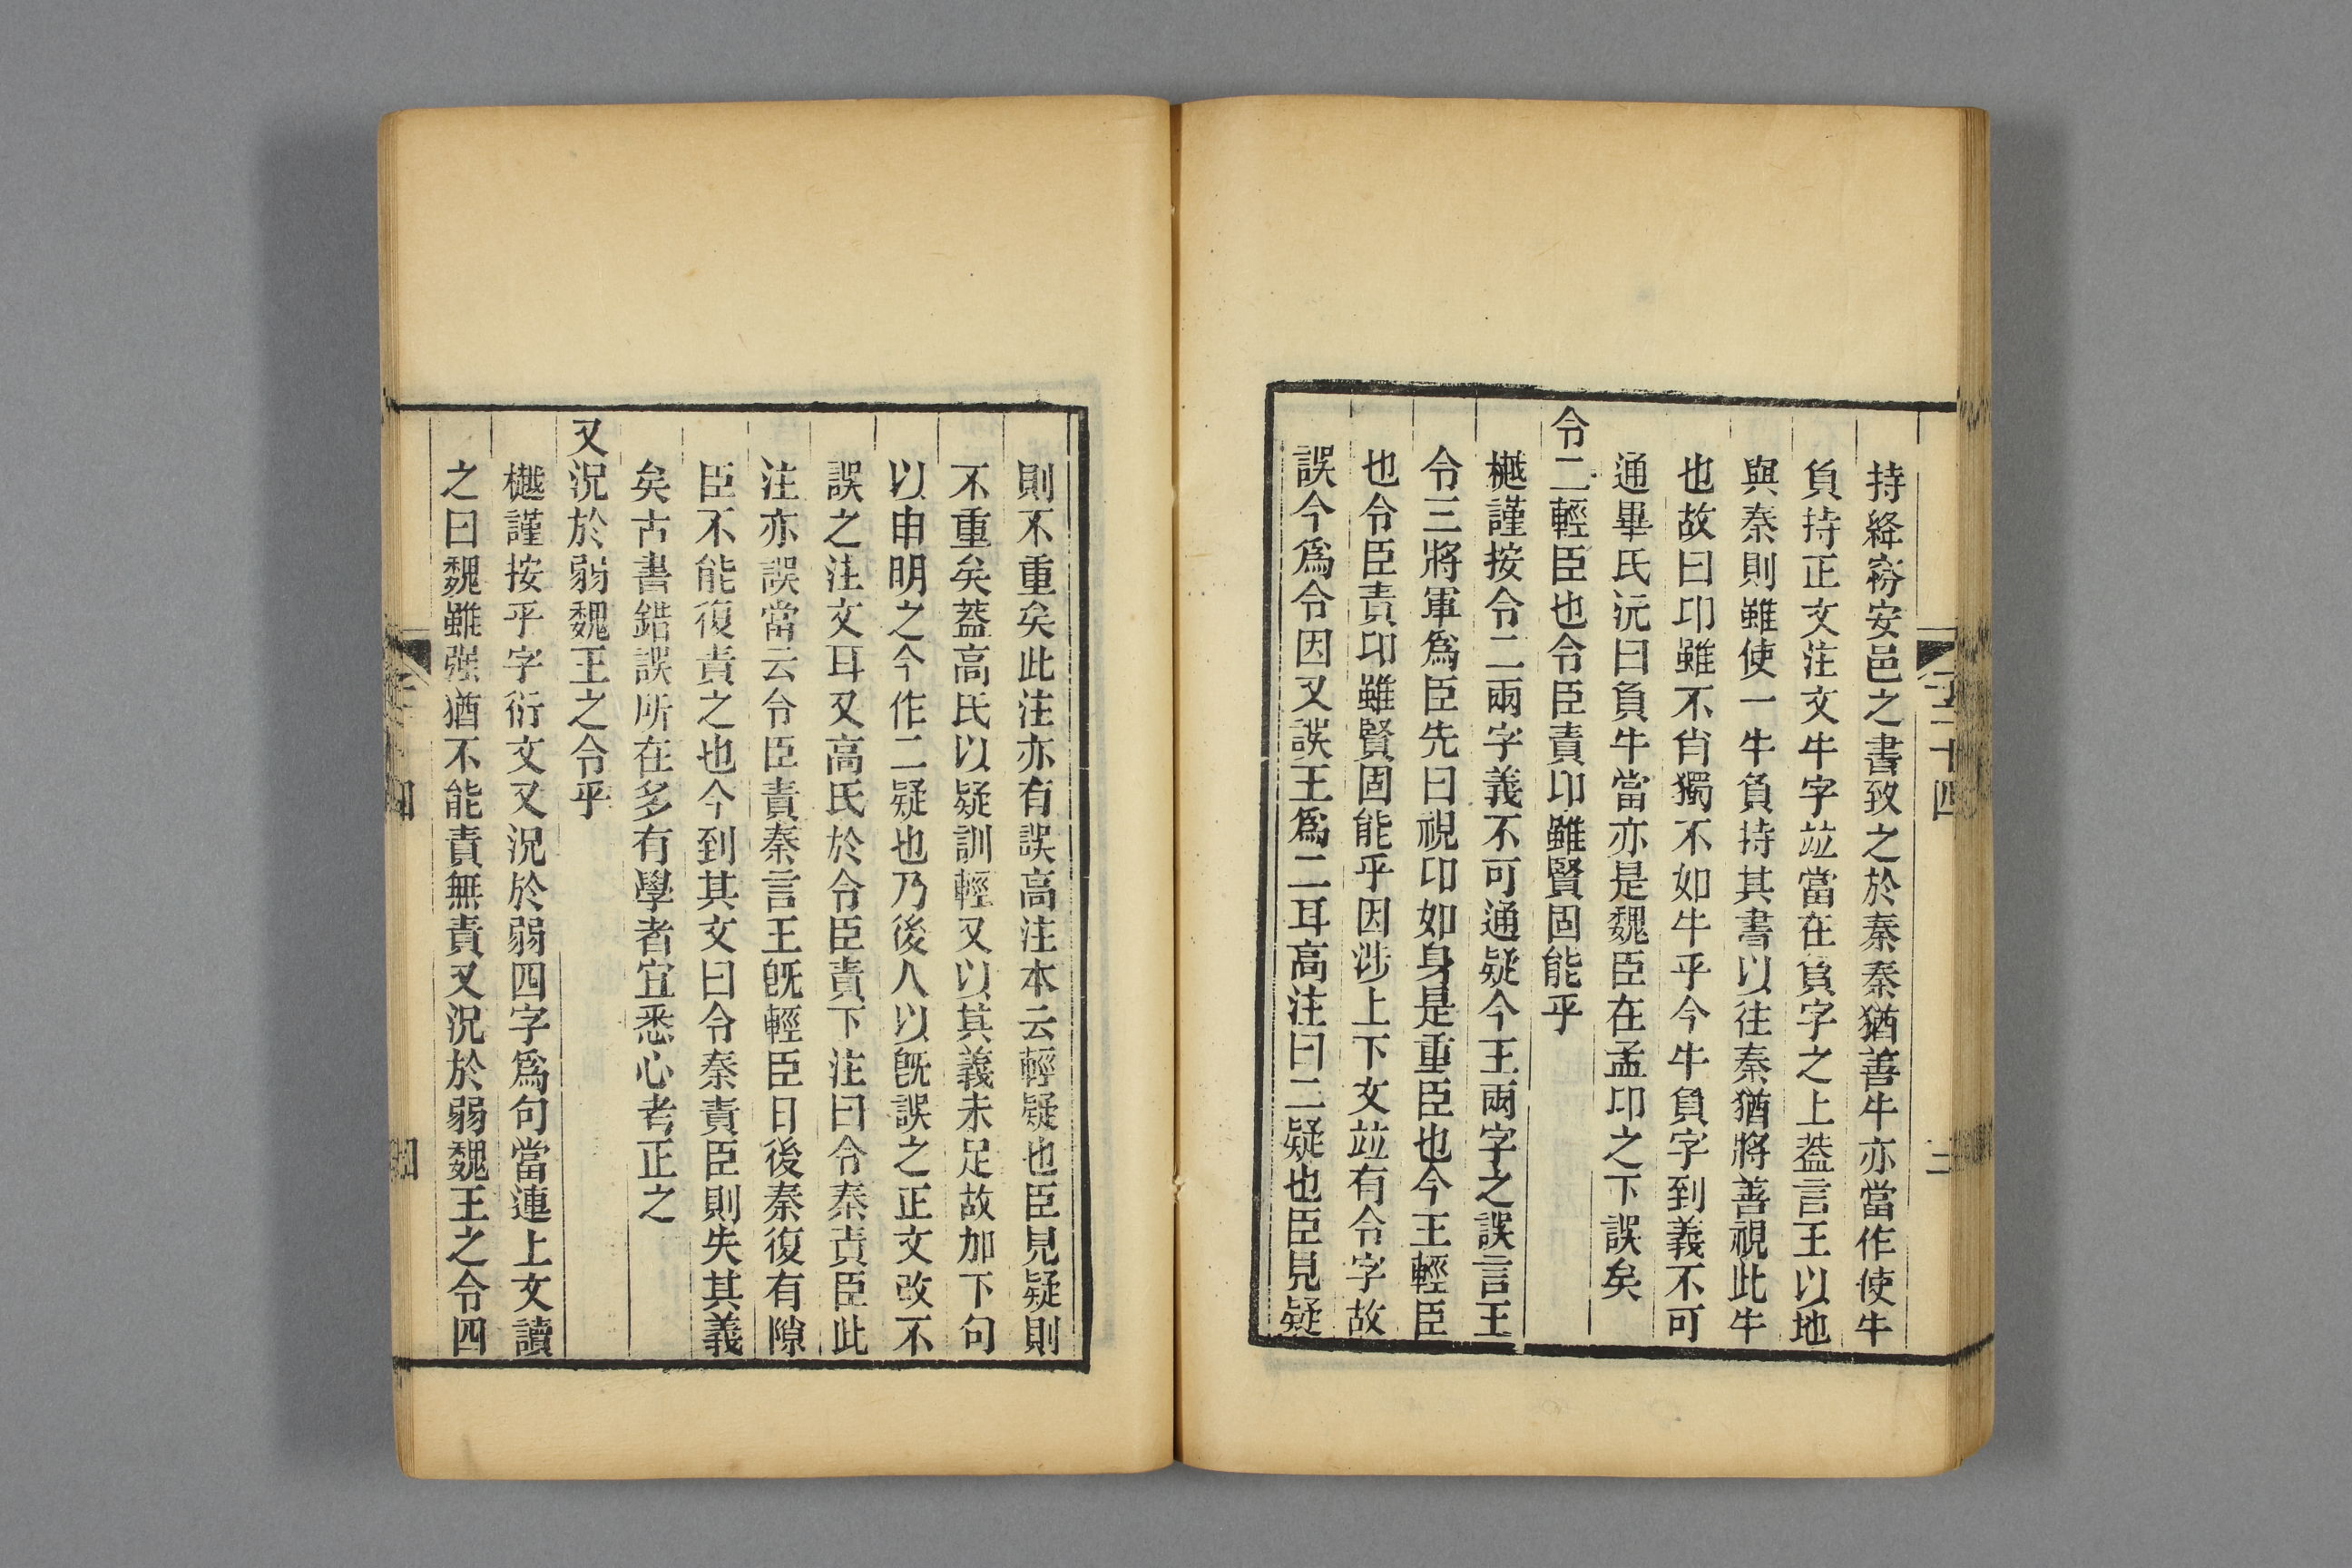 持絳窌安邑之書致之於秦秦猶善牛亦當作使牛
負持正文注文牛字竝當在負字之上葢言王以地
與秦則雖使一牛負持其書以往秦猶將善視此牛
也故曰卬雖不肖獨不如牛乎今牛負字到義不可
通畢氏沅曰負牛當亦是魏臣在孟卬之下誤矣
令二輕臣也令臣責卬雖賢固能乎
樾謹按令二兩字義不可通疑今王兩字之誤言王
令三將軍爲臣先曰視卬如身是重臣也今王輕臣
也令臣責卬雖賢固能乎因涉上下文竝有令字故
誤今爲令因又誤王爲二耳高注曰二疑也臣見疑
則不重矣此注亦有誤高注本云輕疑也臣見疑則
不重矣葢高氏以疑訓輕又以其義未足故加下句
以申明之今作二疑也乃後人以旣誤之正文改不
誤之注文耳又高氏於令臣責下注曰令秦責臣此
注亦誤當云令臣責秦言王旣輕臣日後秦復有隙
臣不能復責之也今到其文曰令秦責臣則失其義
矣古書錯誤所在多有學者宜悉心考正之
又況於弱魏王之令乎
樾謹按乎字衍文又況於弱四字爲句當連上文讀
之曰魏雖强猶不能責無責又況於弱魏王之令四
二十四
三
四